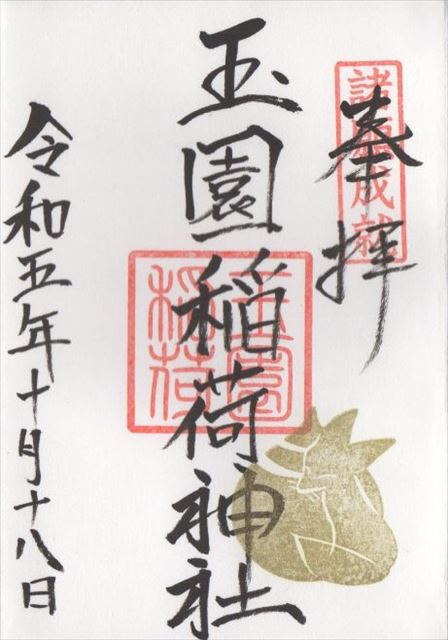 奉拝
諸願成就
玉園稲荷神社
玉園
稲荷
令和五年十月十八日